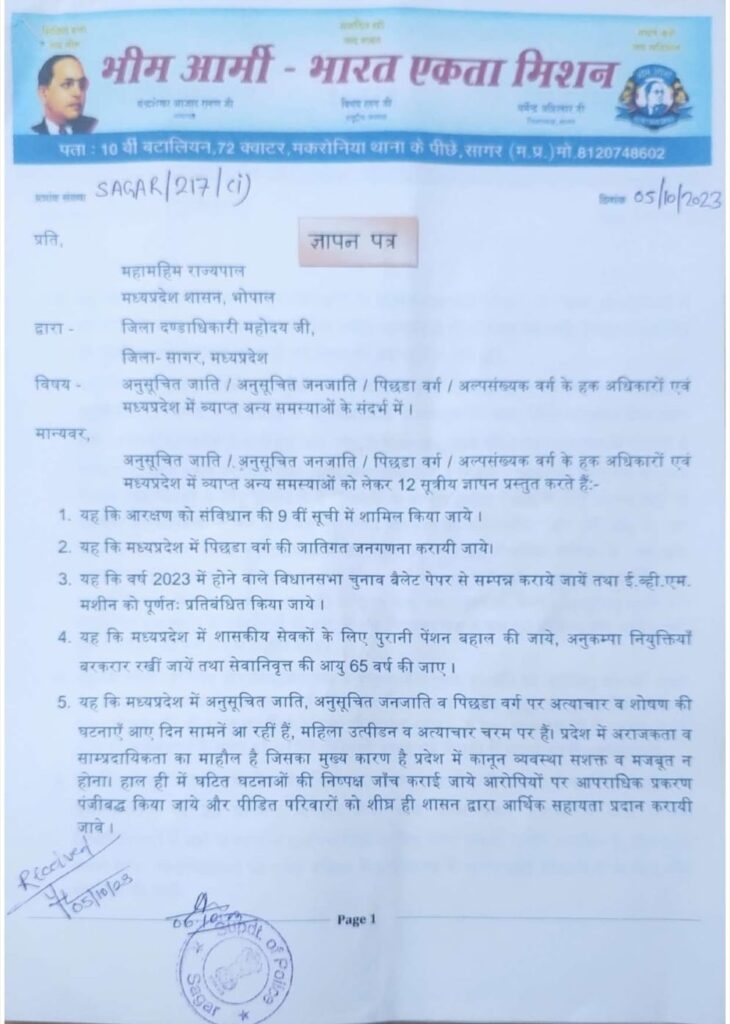 भीम आर्मी - भारत एकता मिशन
पता : 10 वी बटालियन,72 क्वाटर,मकरोनिया थाना के पीछे,सागर (म.प्र.)मो.8120748602
SAGAR/217/(i)
दिनांक 05/10/2023
ज्ञापन पत्र
प्रति,
महामहिम राज्यपाल
मध्यप्रदेश शासन, भोपाल
द्वारा - जिला दण्डाधिकारी महोदय जी,
जिला- सागर, मध्यप्रदेश
विषय - अनुसूचित जाति / अनुसूचित जनजाति / पिछडा वर्ग / अल्पसंख्यक वर्ग के हक अधिकारों एवं
मध्यप्रदेश में व्याप्त अन्य समस्याओं के संदर्भ में ।
मान्यवर,
अनुसूचित जाति / अनुसूचित जनजाति / पिछडा वर्ग / अल्पसंख्यक वर्ग के हक अधिकारों एवं
मध्यप्रदेश में व्याप्त अन्य समस्याओं को लेकर 12 सूत्रीय ज्ञापन प्रस्तुत करते हैं:-
1. यह कि आरक्षण को संविधान की 9 वीं सूची में शामिल किया जाये ।
2. यह कि मध्यप्रदेश में पिछडा वर्ग की जातिगत जनगणना करायी जाये।
3. यह कि वर्ष 2023 में होने वाले विधानसभा चुनाव बैलेट पेपर से सम्पन्न कराये जायें तथा ई.व्ही.एम.
मशीन को पूर्णतः प्रतिबंधित किया जाये ।
4. यह कि मध्यप्रदेश में शासकीय सेवकों के लिए पुरानी पेंशन बहाल की जाये, अनुकम्पा नियुक्तियाँ
बरकरार रखीं जायें तथा सेवानिवृत्त की आयु 65 वर्ष की जाए ।
5. यह कि मध्यप्रदेश में अनुसूचित जाति, अनुसूचित जनजाति व पिछडा वर्ग पर अत्याचार व शोषण की
घटनाएँ आए दिन सामनें आ रहीं हैं, महिला उत्पीडन व अत्याचार चरम पर हैं। प्रदेश में अराजकता व
साम्प्रदायिकता का माहौल है जिसका मुख्य कारण है प्रदेश में कानून व्यवस्था सशक्त व मजबूत न
होना। हाल ही में घटित घटनाओं की निष्पक्ष जाँच कराई जाये आरोपियों पर आपराधिक प्रकरण
पंजीबद्ध किया जाये और पीडित परिवारों को शीघ्र ही शासन द्वारा आर्थिक सहायता प्रदान करायी
जावे ।
Received
05/10/23
Page 1
Supdt. of Police
Sagar